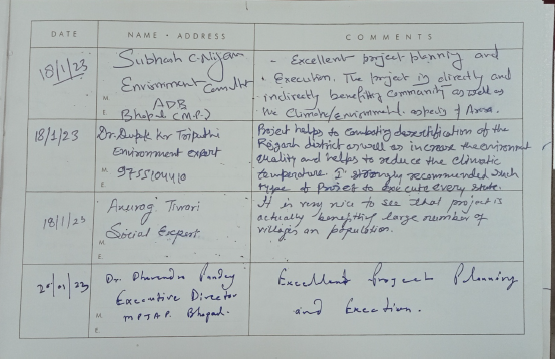 DATE NAME - ADDRESS COMMENTS
18/1/23
Subhash C. Nigam
Environment Consultant
ADB
Bhopal (M.P.)
M
E
- Excellent project planning and
• Execution. The project is directly and
indirectly benefitting community as well as
the Climate/environmental aspects of Area.
18/1/23
Dr. Dupak Kr Tripathi
Environment expert
M
E
Project helps to combating desertification of the
Rajgarh district as well as increase the environment
quality and helps to reduce the climatic
temperature. I strongly recommended such
type of Project to execute every state.
18/1/23
Anurag Tiwari
Social Expert
M
E
It is very nice to see that project is
actually benefitting large number of
villages on population.
20/01/23
Dr. Dharendra Pandey
Executive Director
M
Bhopal.
E
Excellent Project Planning
and Exection.